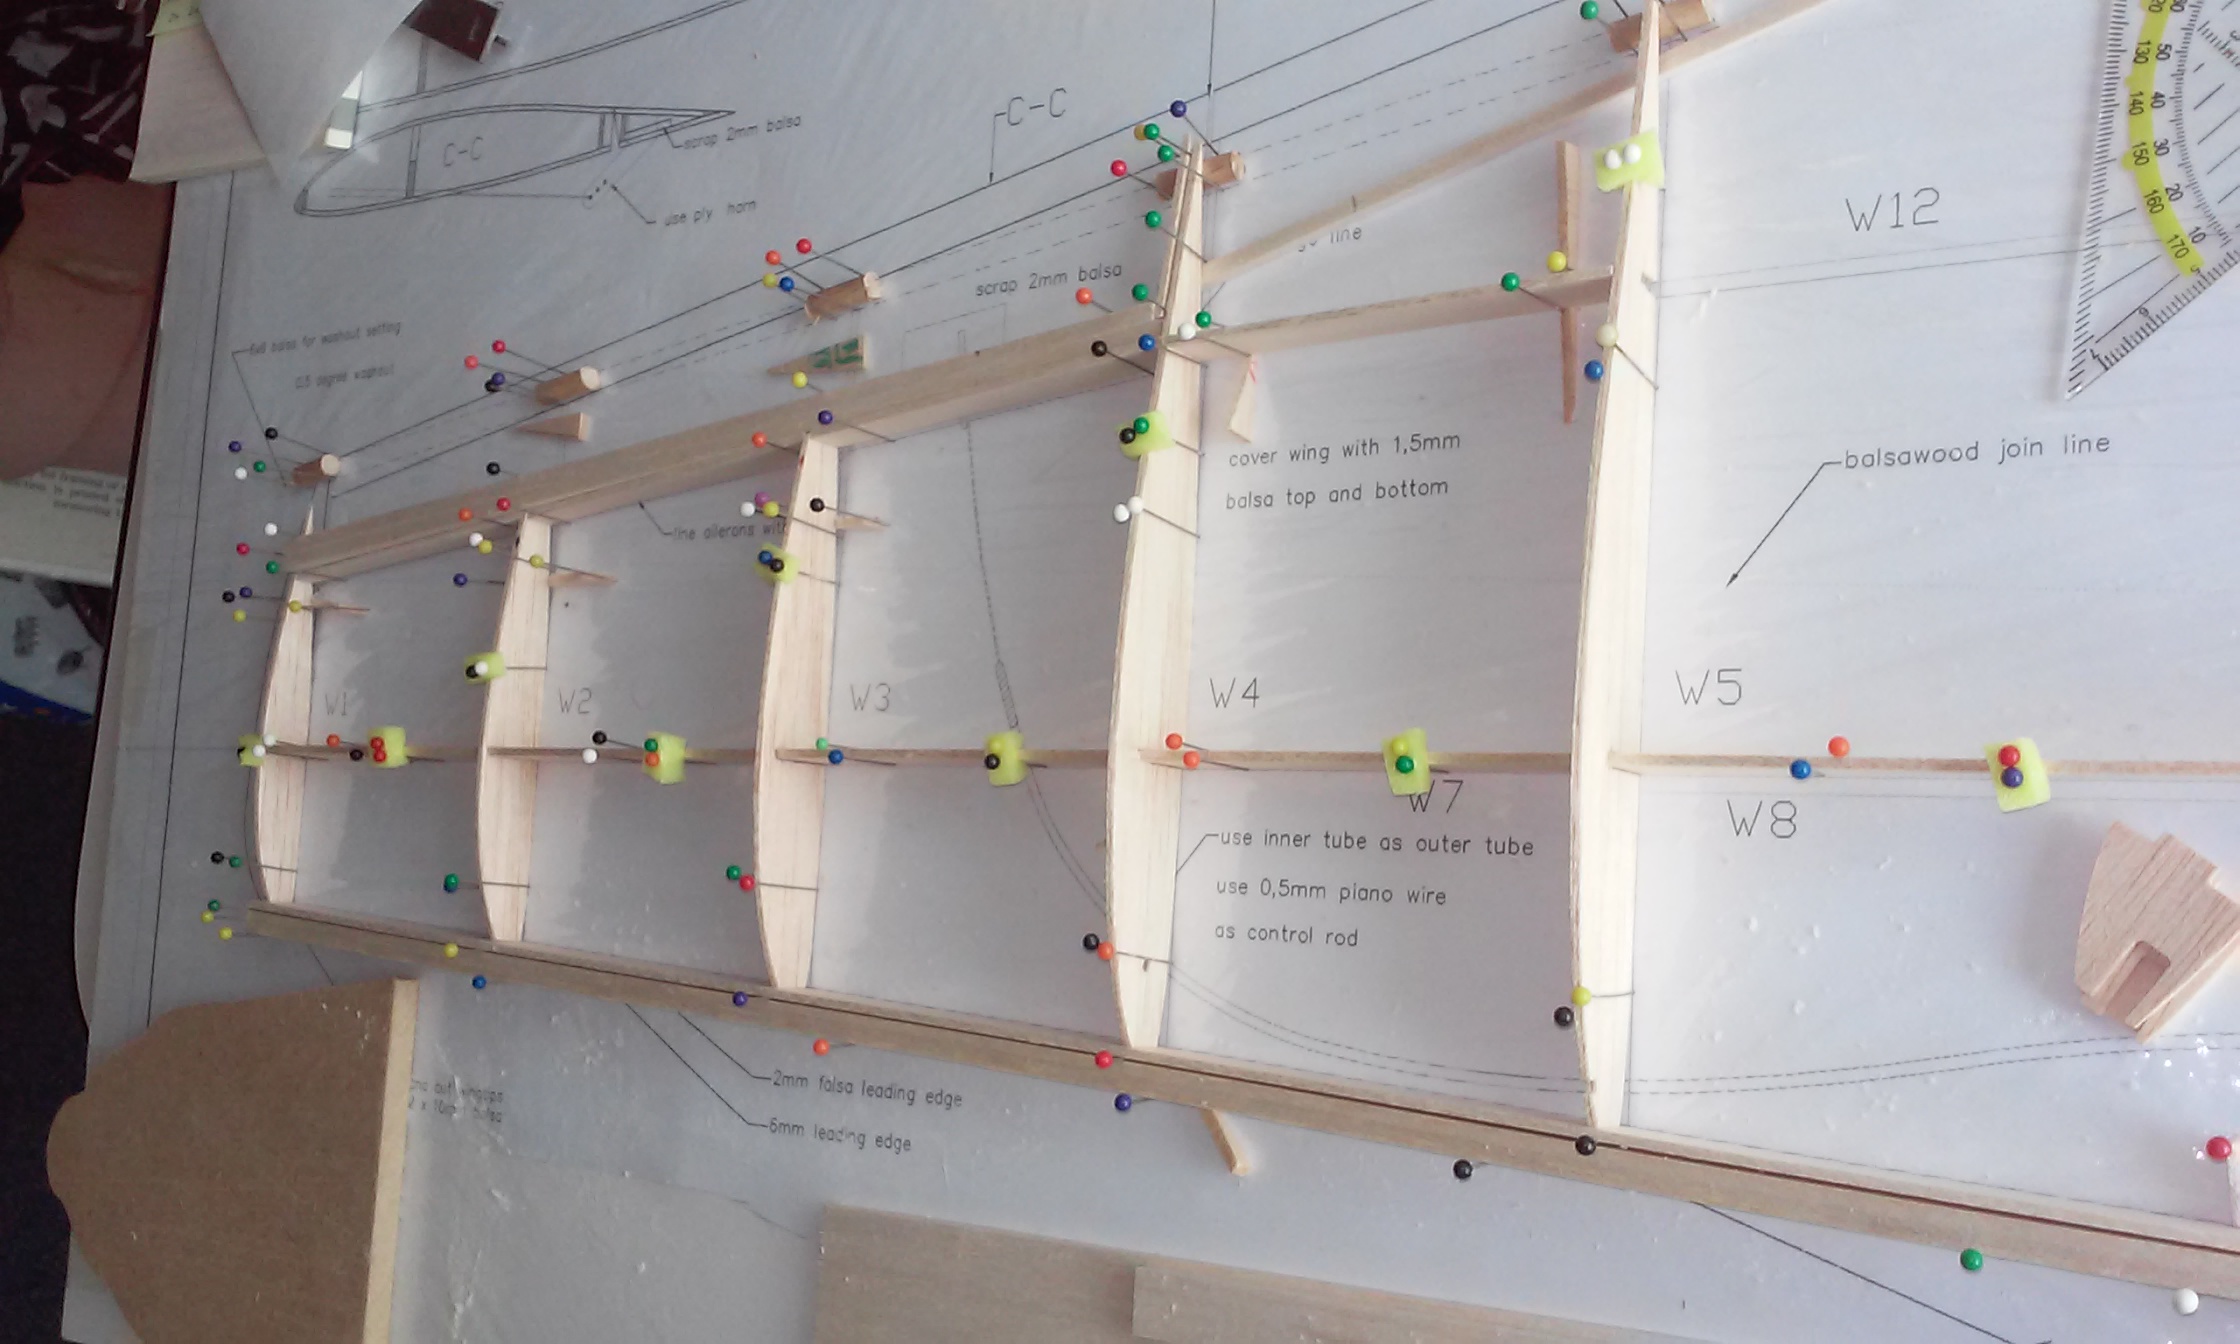 C-C
C-C
scrap 2mm balsa
use ply horn
balsa for washout setting
0,5 degree washout
scrap 2mm balsa
line
W12
cover wing with 1,5mm
balsa top and bottom
balsawood join line
line ailerons with
W1
W2
W3
W4
W5
W7
W8
use inner tube as outer tube
use 0,5mm piano wire
as control rod
2mm falsa leading edge
6mm leading edge
out wingtips
balsa
130 50
140 40
150 30
160 20
170 10